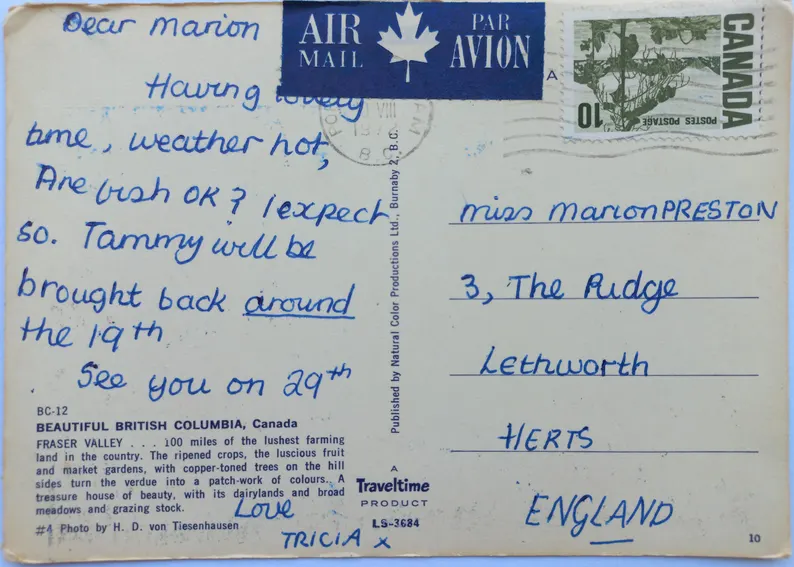 Dear Marion
Having lovely
time, weather hot,
Are fish OK? I expect
so. Tammy will be
brought back around
the 19th
See you on 29th
Love
TRICIA x
BC-12
BEAUTIFUL BRITISH COLUMBIA, Canada
FRASER VALLEY . . . 100 miles of the lushest farming
land in the country. The ripened crops, the luscious fruit
and market gardens, with copper-toned trees on the hill
sides turn the verdue into a patch-work of colours. A
treasure house of beauty, with its dairylands and broad
meadows and grazing stock.
#4 Photo by H. D. von Tiesenhausen
Published by Natural Color Productions Ltd., Burnaby 2, B.C.
A
Traveltime
PRODUCT
LS-3684
AIR MAIL
PAR AVION
A
VIII
B.C.
CANADA
POSTES POSTAGE
10
miss Marion PRESTON
3, The Ridge
Lethworth
HERTS
ENGLAND
10